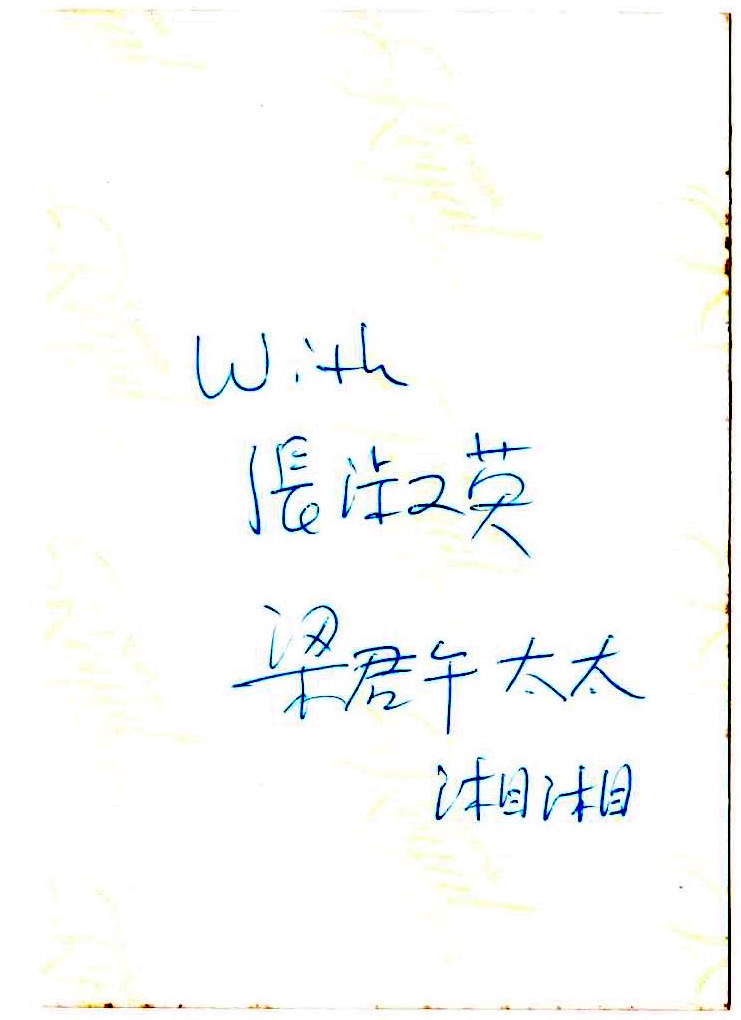 With
張淑英
梁君午太太
湘湘